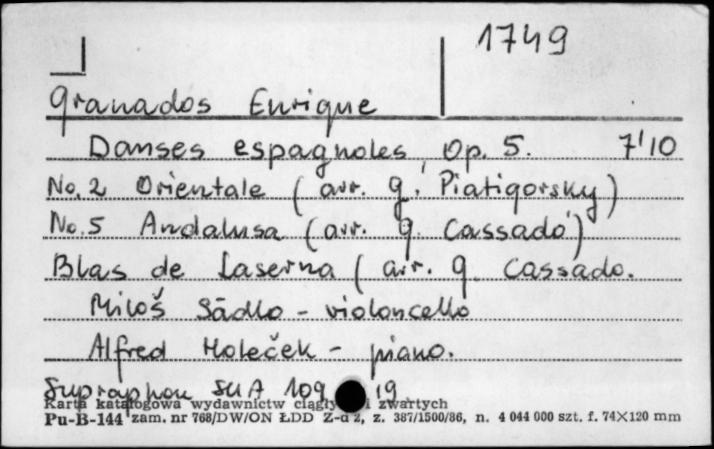 1749
Granados Enrique
Danses espagnoles, Op. 5. 7'10
No. 2 Orientale (arr. g. Piatigorsky)
No. 5 Andalusa (arr. g. Cassado)
Blas de Laserna (arr. g. Cassado.
Miloš Sādlo - violoncello
Alfred Holeček - piano.
Supraphon SUA 109 19
Karta katalogowa wydawnictw ciągły i zwartych
Pu-B-144 zam. nr 768/DW/ON ŁDD Z-d 2, z. 387/1500/86, n. 4 044 000 szt. f. 74×120 mm